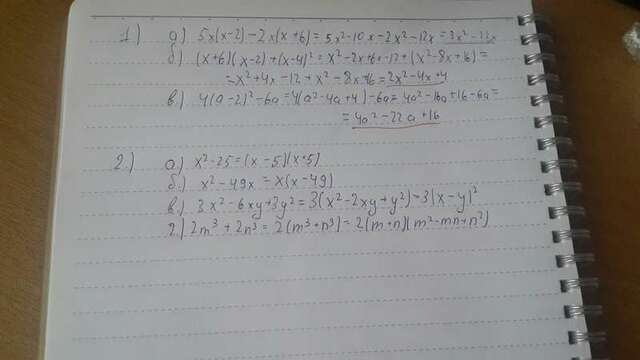 1) а) 5x(x-2)-2x(x+6)=5x²-10x-2x²-12x=3x²-22x
б) (x+6)(x-2)+(x-4)²=x²-2x+6x-12+(x²-8x+16)=
=x²+4x-12+x²-8x+16=2x²-4x+4
в) 4(a-2)²-6a=4(a²-4a+4)-6a=4a²-16a+16-6a=
=4a²-22a+16
2.) а) x²-25=(x-5)(x+5)
б) x²-49x=x(x-49)
в) 3x²-6xy+3y²=3(x²-2xy+y²)=3(x-y)²
г) 2m³+2n³=2(m³+n³)=2(m+n)(m²-mn+n²)